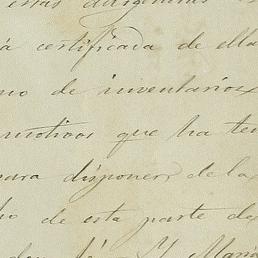 estas diligencias
á certificada de ella
no de inventarios
motivos que ha te
para disponer de la
ho de esta parte de
den fé Y María